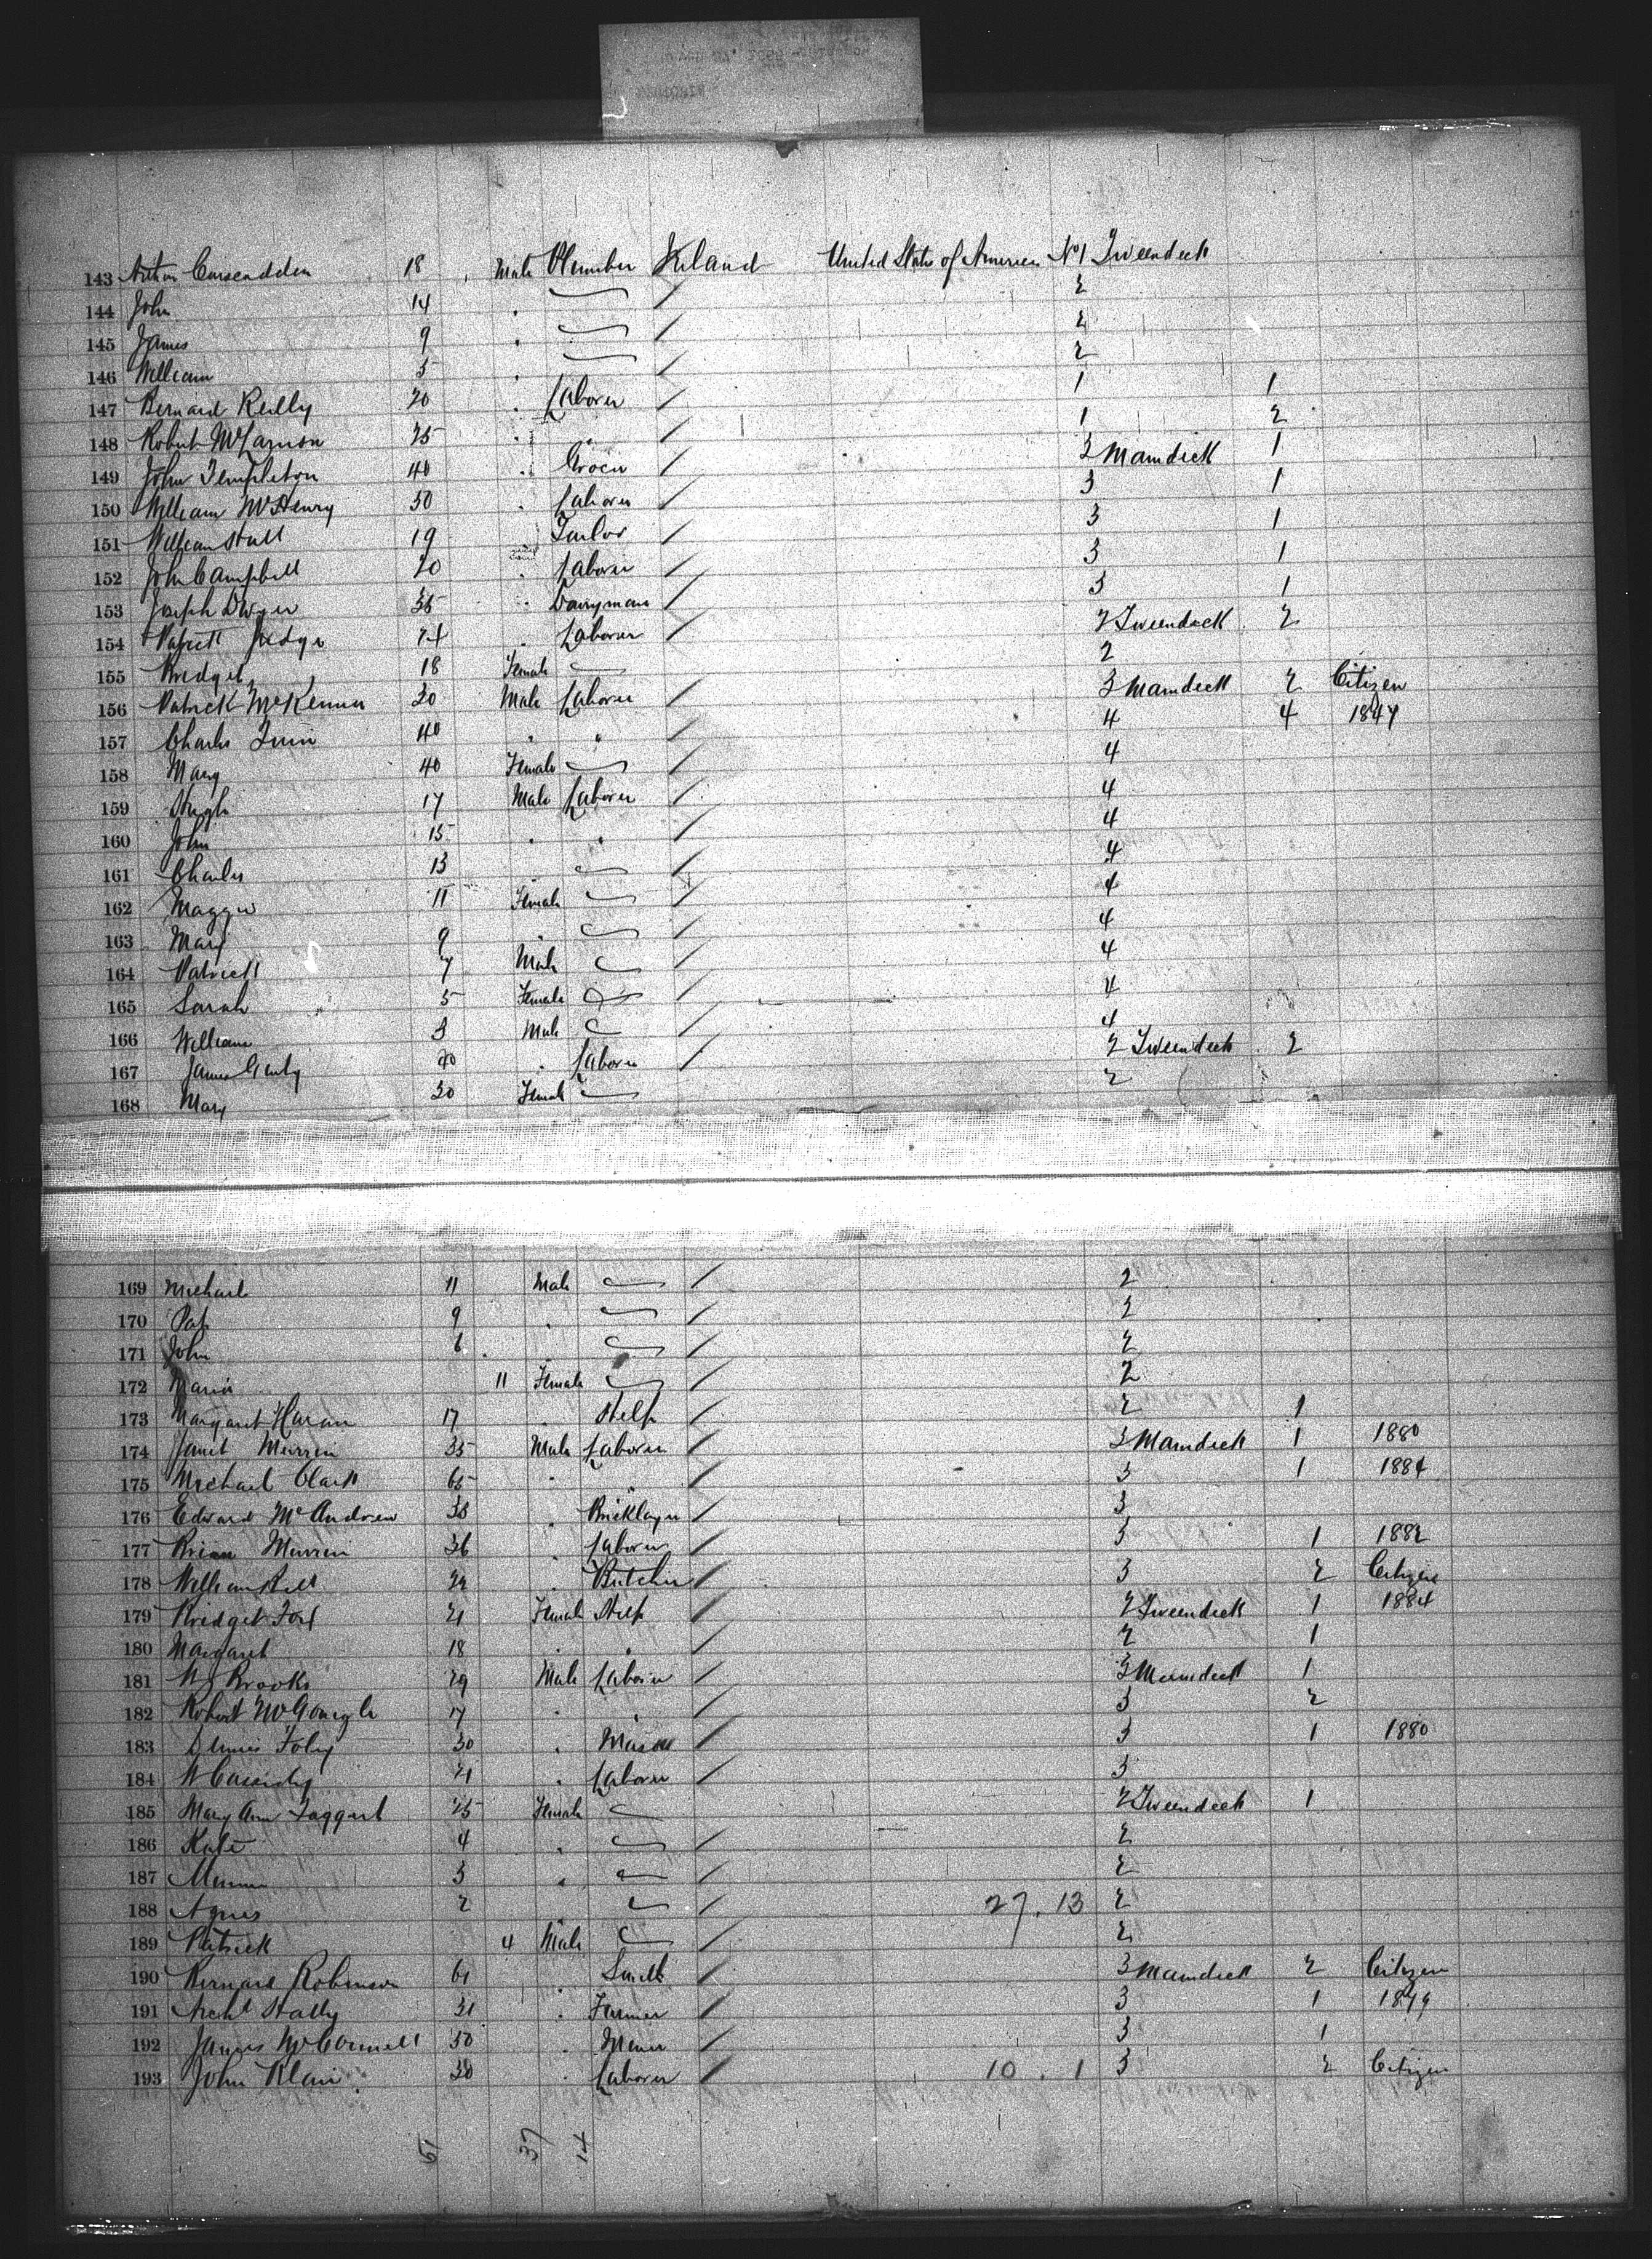 143 Arthur 18 Male Plumber Ireland United States of America No 1 Tweendeck
144 John 14 2
145 James 9 2
146 William 5 2
147 Bernard Reilly 20 Laborer 1 1
148 Robert 25 " 1 2
149 John Templeton 40 Grocer 3 Maindeck 1
150 William McHenry 50 Laborer 3 1
151 William 19 Tailor 3 1
152 John Campbell 20 Laborer 3 1
153 Joseph Dwyer 35 Dairyman 3 1
154 Patrick Judge 24 Laborer 2 Tweendeck 2
155 Bridget 18 Female 2
156 Patrick McKenna 30 Male Laborer 3 Maindeck 2 Citizen
157 Charles Quin 40 " " 4 4 1847
158 Mary 40 Female 4
159 Hugh 17 Male Laborer 4
160 John 15 " " 4
161 Charles 13 4
162 Maggie 11 Female 4
163 Mary 9 " 4
164 Patrick 7 Male 4
165 Sarah 5 Female 4
166 William 3 Male 4
167 James 40 " Laborer 2 Tweendeck 2
168 Mary 30 Female 2
169 Michael 11 Male 2
170 Pat 9 " 2
171 John 6 2
172 Maria 11 Female 2
173 Margaret Haran 17 " Help 2 1
174 Murren 35 Male Laborer 3 Maindeck 1 1880
175 Michael Clark 65 " " 3 1 1884
176 Edward McAndrew 38 " Bricklayer 3
177 Brian Murren 36 " Laborer 3 1 1882
178 William Bell " Butcher 3 2 Citizen
179 Bridget Fox 21 Female Help 2 Tweendeck 1 1884
180 Margaret 18 " " 2 1
181 Brooks 29 Male Laborer 3 Maindeck 1
182 Robert McGonigle 17 " " 3 2
183 Dennis Foley 30 " Mason 3 1 1880
184 W Cassidy 21 " Laborer 3
185 Mary Ann Taggart 25 Female 2 Tweendeck 1
186 Kate 4 " 2
187 3 " 2
188 Agnes 2 27 . 13 2
189 Patrick 4 Male 2
190 Bernard Robinson 61 Smith 3 Maindeck 2 Citizen
191 Archd 31 " Farmer 3 1 1879
192 James McConnell 50 " Miner 3 1
193 John Blair 30 " Laborer 10 . 1 3 2 Citizen
51 37 14